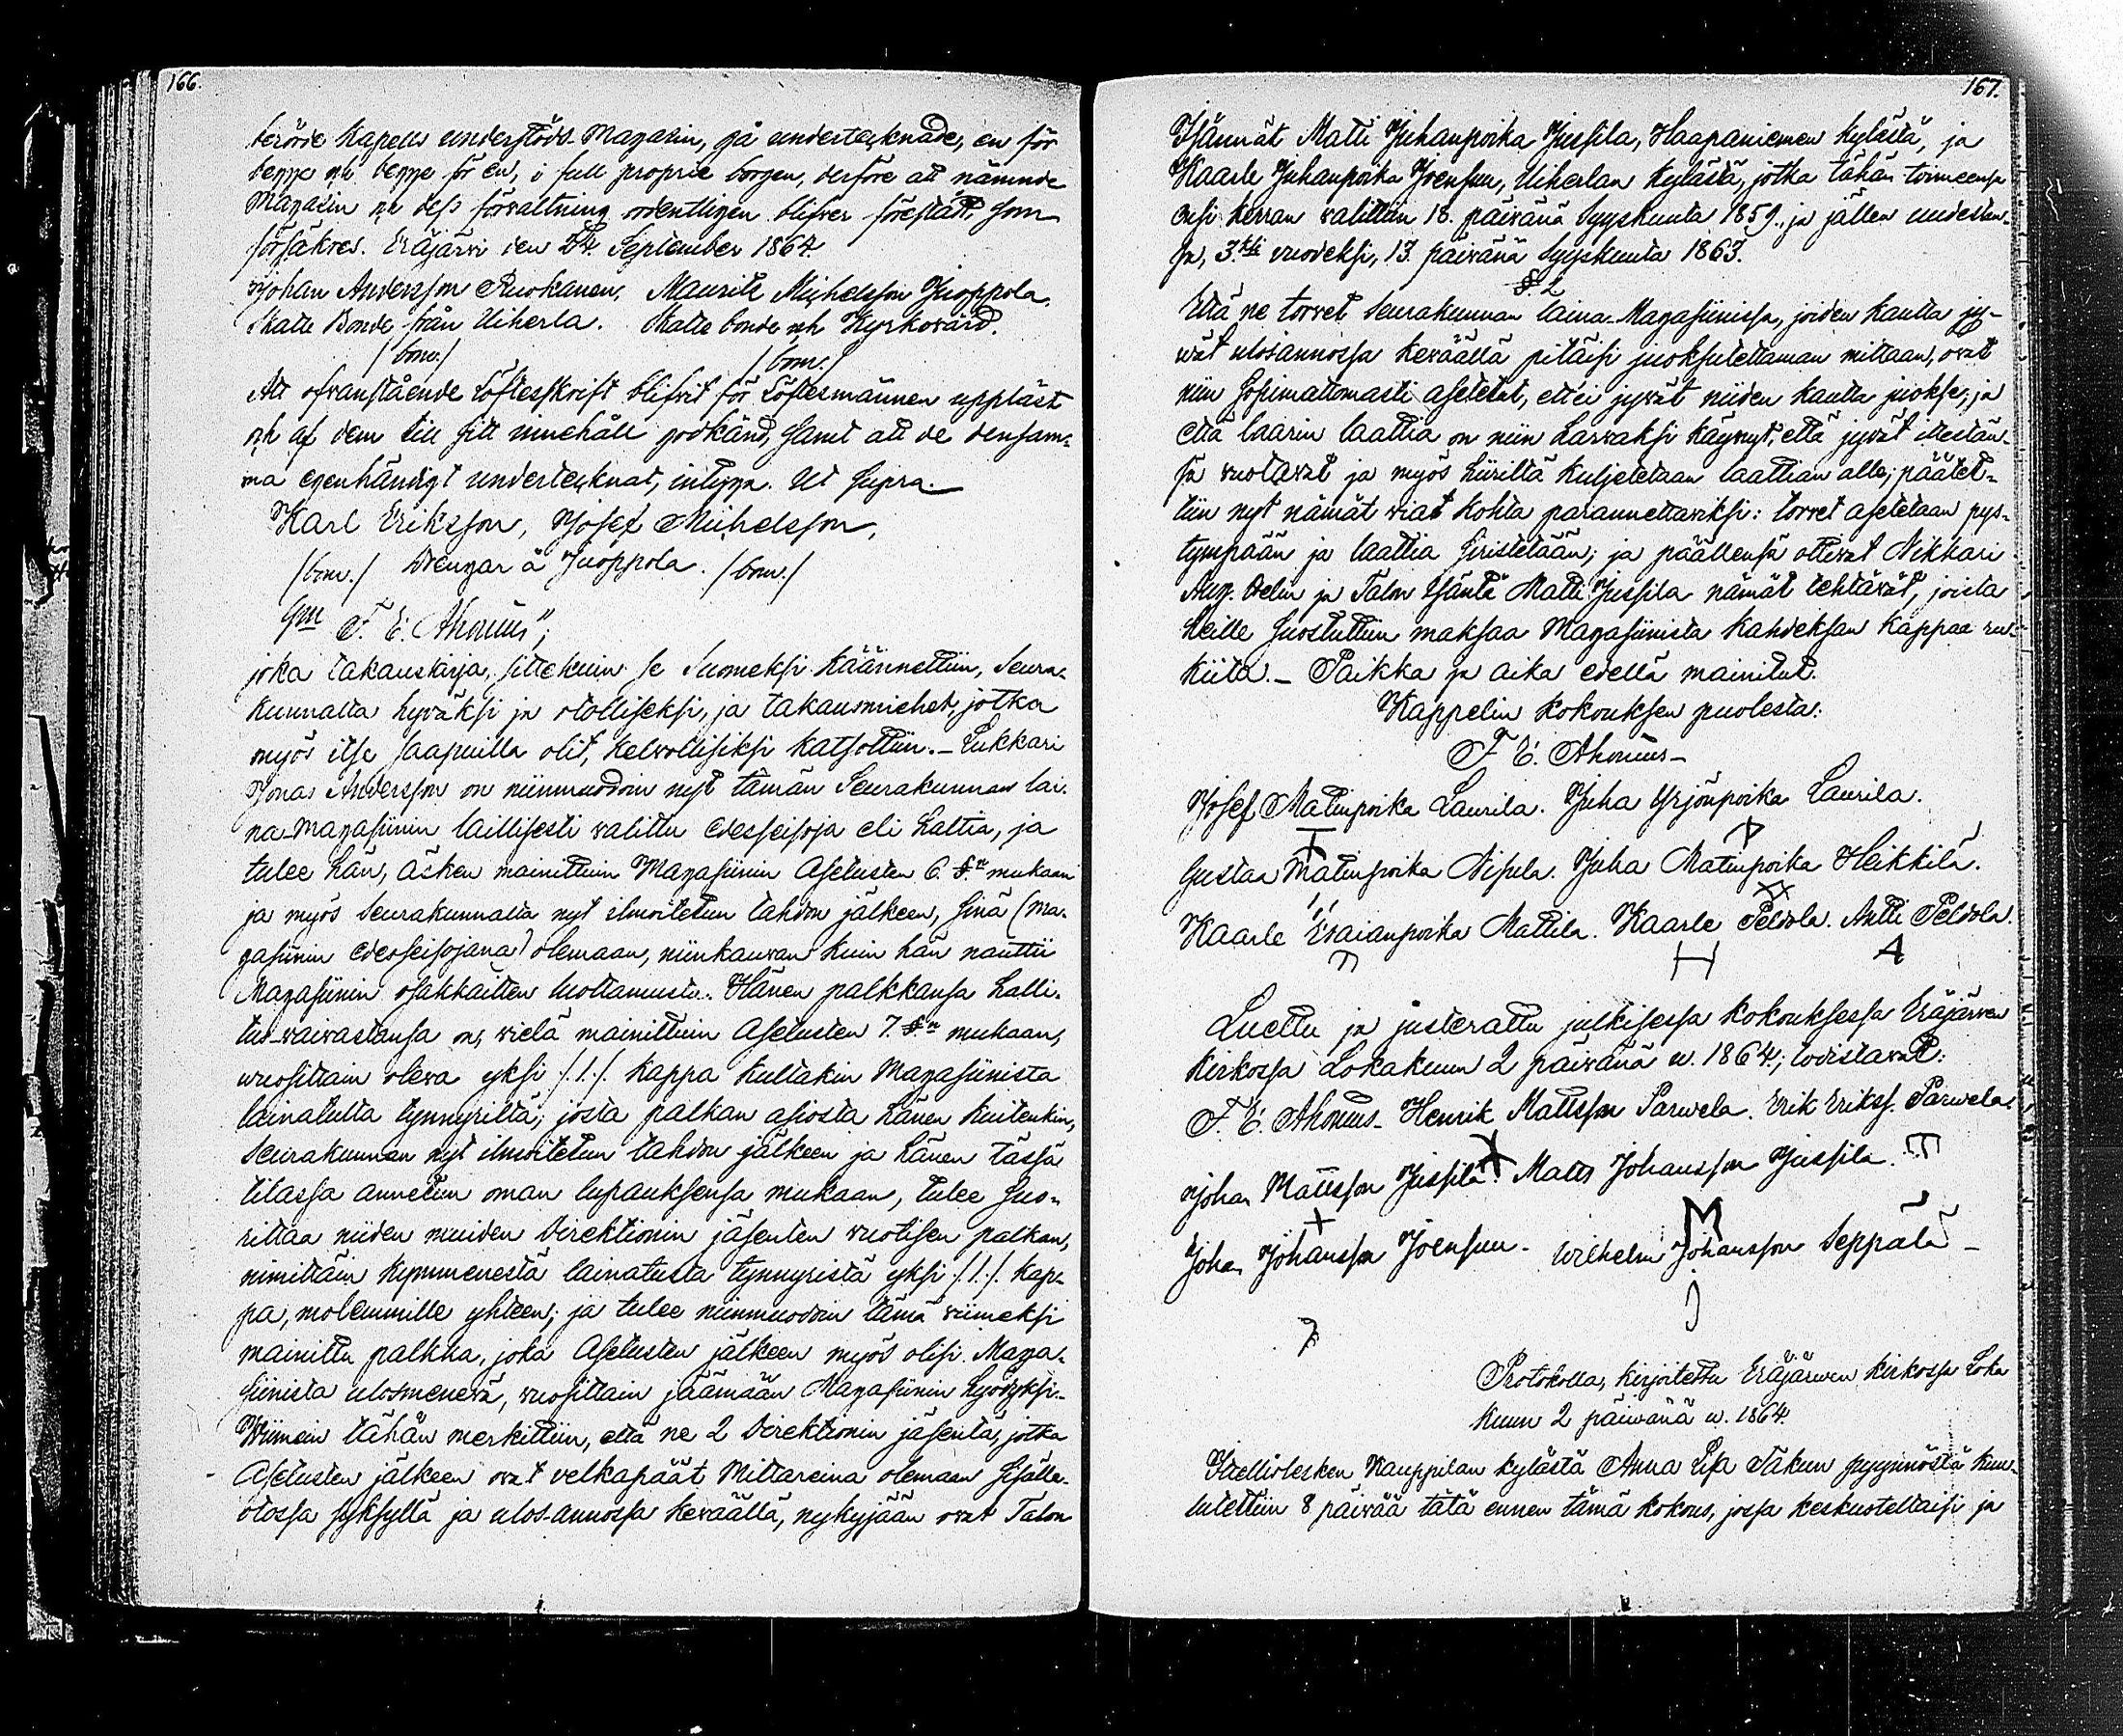 166.
berörde Kapells understöds-Magazin, gå undertecknade, en för
begge och begge för en, i full proprie borgen, derföre att nämnde
Magazin och dess förvaltning ordentligen blifver förestått, som
försäkres. Eräjärvi den 24. September 1864.
Johan Andersson Ruokanen, Maurits Michelsson Juoppola,
Skatte Bonde från Uiherla. Skatte bonde och Kyrkovärd.
/bom./ /bom./
Att ofvanstående Löftesskrift blifvit för Löftesmännen uppläst
och af dem till sitt innehåll godkänd, samt att de densam-
ma egenhändigt undertecknat, intyga. Ut supra.
Karl Eriksson, Josef Michelsson,
/bom./ Drengar å Juoppola. /bom./
F. E. Ahonius";
joka takauskirja, sittekuin se Suomeksi käännettiin, Seura-
kunnalta hyväksi ja otolliseksi, ja takausmiehet, jotka
myös itse saapuilla olit, kelvollisiksi katsottiin. – Lukkari
Jonas Andersson on niinmuodoin nyt tämän Seurakunnan lai-
na-magasiinin laillisesti valittu edesseisoja eli haltia, ja
tulee hän, äsken mainittuin Magasiinin Asetusten 6. §:n mukaan
ja myös Seurakunnalta nyt ilmoitetun tahdon jälkeen, siinä (ma-
gasiinin edesseisojana) olemaan, niinkauvan kuin hän nauttii
Magasiinin osakkaitten luottamusta. Hänen palkkansa halli-
tus-vaivastansa on, vielä mainittuin Asetusten 7. §:n mukaan,
vuosittain oleva yksi /.1./. kappa kultakin Magasiinista
lainatulta tynnyriltä; josta palkan asiosta hänen kuitenkin,
Seurakunnan nyt ilmoitetun tahdon jälkeen ja hänen tässä
tilassa annetun oman lupauksensa mukaan, tulee suo-
rittaa niiden muiden Direktionin jäsenten vuotisen palkan,
nimittäin kymmenestä lainatusta tynnyristä yksi /.1./. kap-
pa, molemmille yhteen; ja tulee niinmuodoin tämä viimeksi
mainittu palkka, joka Asetusten jälkeen myös olisi Maga-
siinista ulosmenevä, vuosittain jäämään Magasiinin hyödyksi.
Viimein tähän merkittiin, että ne 2 Direktionin jäsentä, jotka
Asetusten jälkeen ovat velkapäät Mittareina olemaan sisälle-
otossa syksyllä ja ulos-annossa keväällä, nykyjään ovat Talon
167.
Isännät Matti Juhanpoika Jussila, Haapaniemen kylästä, ja
Kaarle Juhanpoika Joensuu, Uiherlan kylästä, jotka tähän toimeensa
ensi kerran valittiin 18. päivänä Syyskuuta 1859., ja jällen uudestan-
sa, 3:ksi vuodeksi, 13. päivänä Syyskuuta 1863.
§. 2
Että ne torvet Seurakunnan laina-Magasiinissa, joiden kautta jy-
vät ulosannossa keväällä pitäisi juoksutettaman mittaan, ovat
niin sopimattomasti asetetut, ett'ei jyvät niiden kautta juokse; ja
että laarin laattia on niin harvaksi käynyt, että jyvät itestän-
sä vuotavat ja myös hiiriltä kuljetetaan laattian alle; päätet-
tiin nyt nämät viat kohta parannettaviksi: torvet asetetaan pys-
tympään ja laattia siristetään; ja päällensä ottivat Nikkari
Aug. Delin ja Talon Isäntä Matti Jussila nämät tehtävät, joista
heille suostuttiin maksaa Magasiinista kahdeksan kappaa ru-
kiita. – Paikka ja aika edellä mainitut.
Kappelin kokouksen puolesta:
F. E. Ahonius –
Josef Matinpoika Laurila. Juha Yrjönpoika Laurila.
Gustaa Matinpoika Nipula. Juha Matinpoika Heikkilä.
Kaarle Esaianpoika Mattila. Kaarle Peldola. Antti Peldola.
H A
Luettu ja justerattu julkisessa kokouksessa Eräjärven
kirkossa Lokakuun 2 päivänä v. 1864; todistavat:
F. E. Ahonius – Henrik Mattsson Parvela. Erik Erikss. Parvela.
Johan Mattsson Jussila. Matts Johansson Jussila.
X M
Johan Johansson Joensuu – Wilhelm Johansson Seppälä –
Protokolla, kirjoitettu Eräjärven kirkossa Loka
kuun 2 päivänä v. 1864.
Itsellislesken Kauppilan kylästä Anna Lisa Takun pyynnöstä kuu-
lutettiin 8 päivää tätä ennen tämä kokous, jossa keskusteltaisi ja